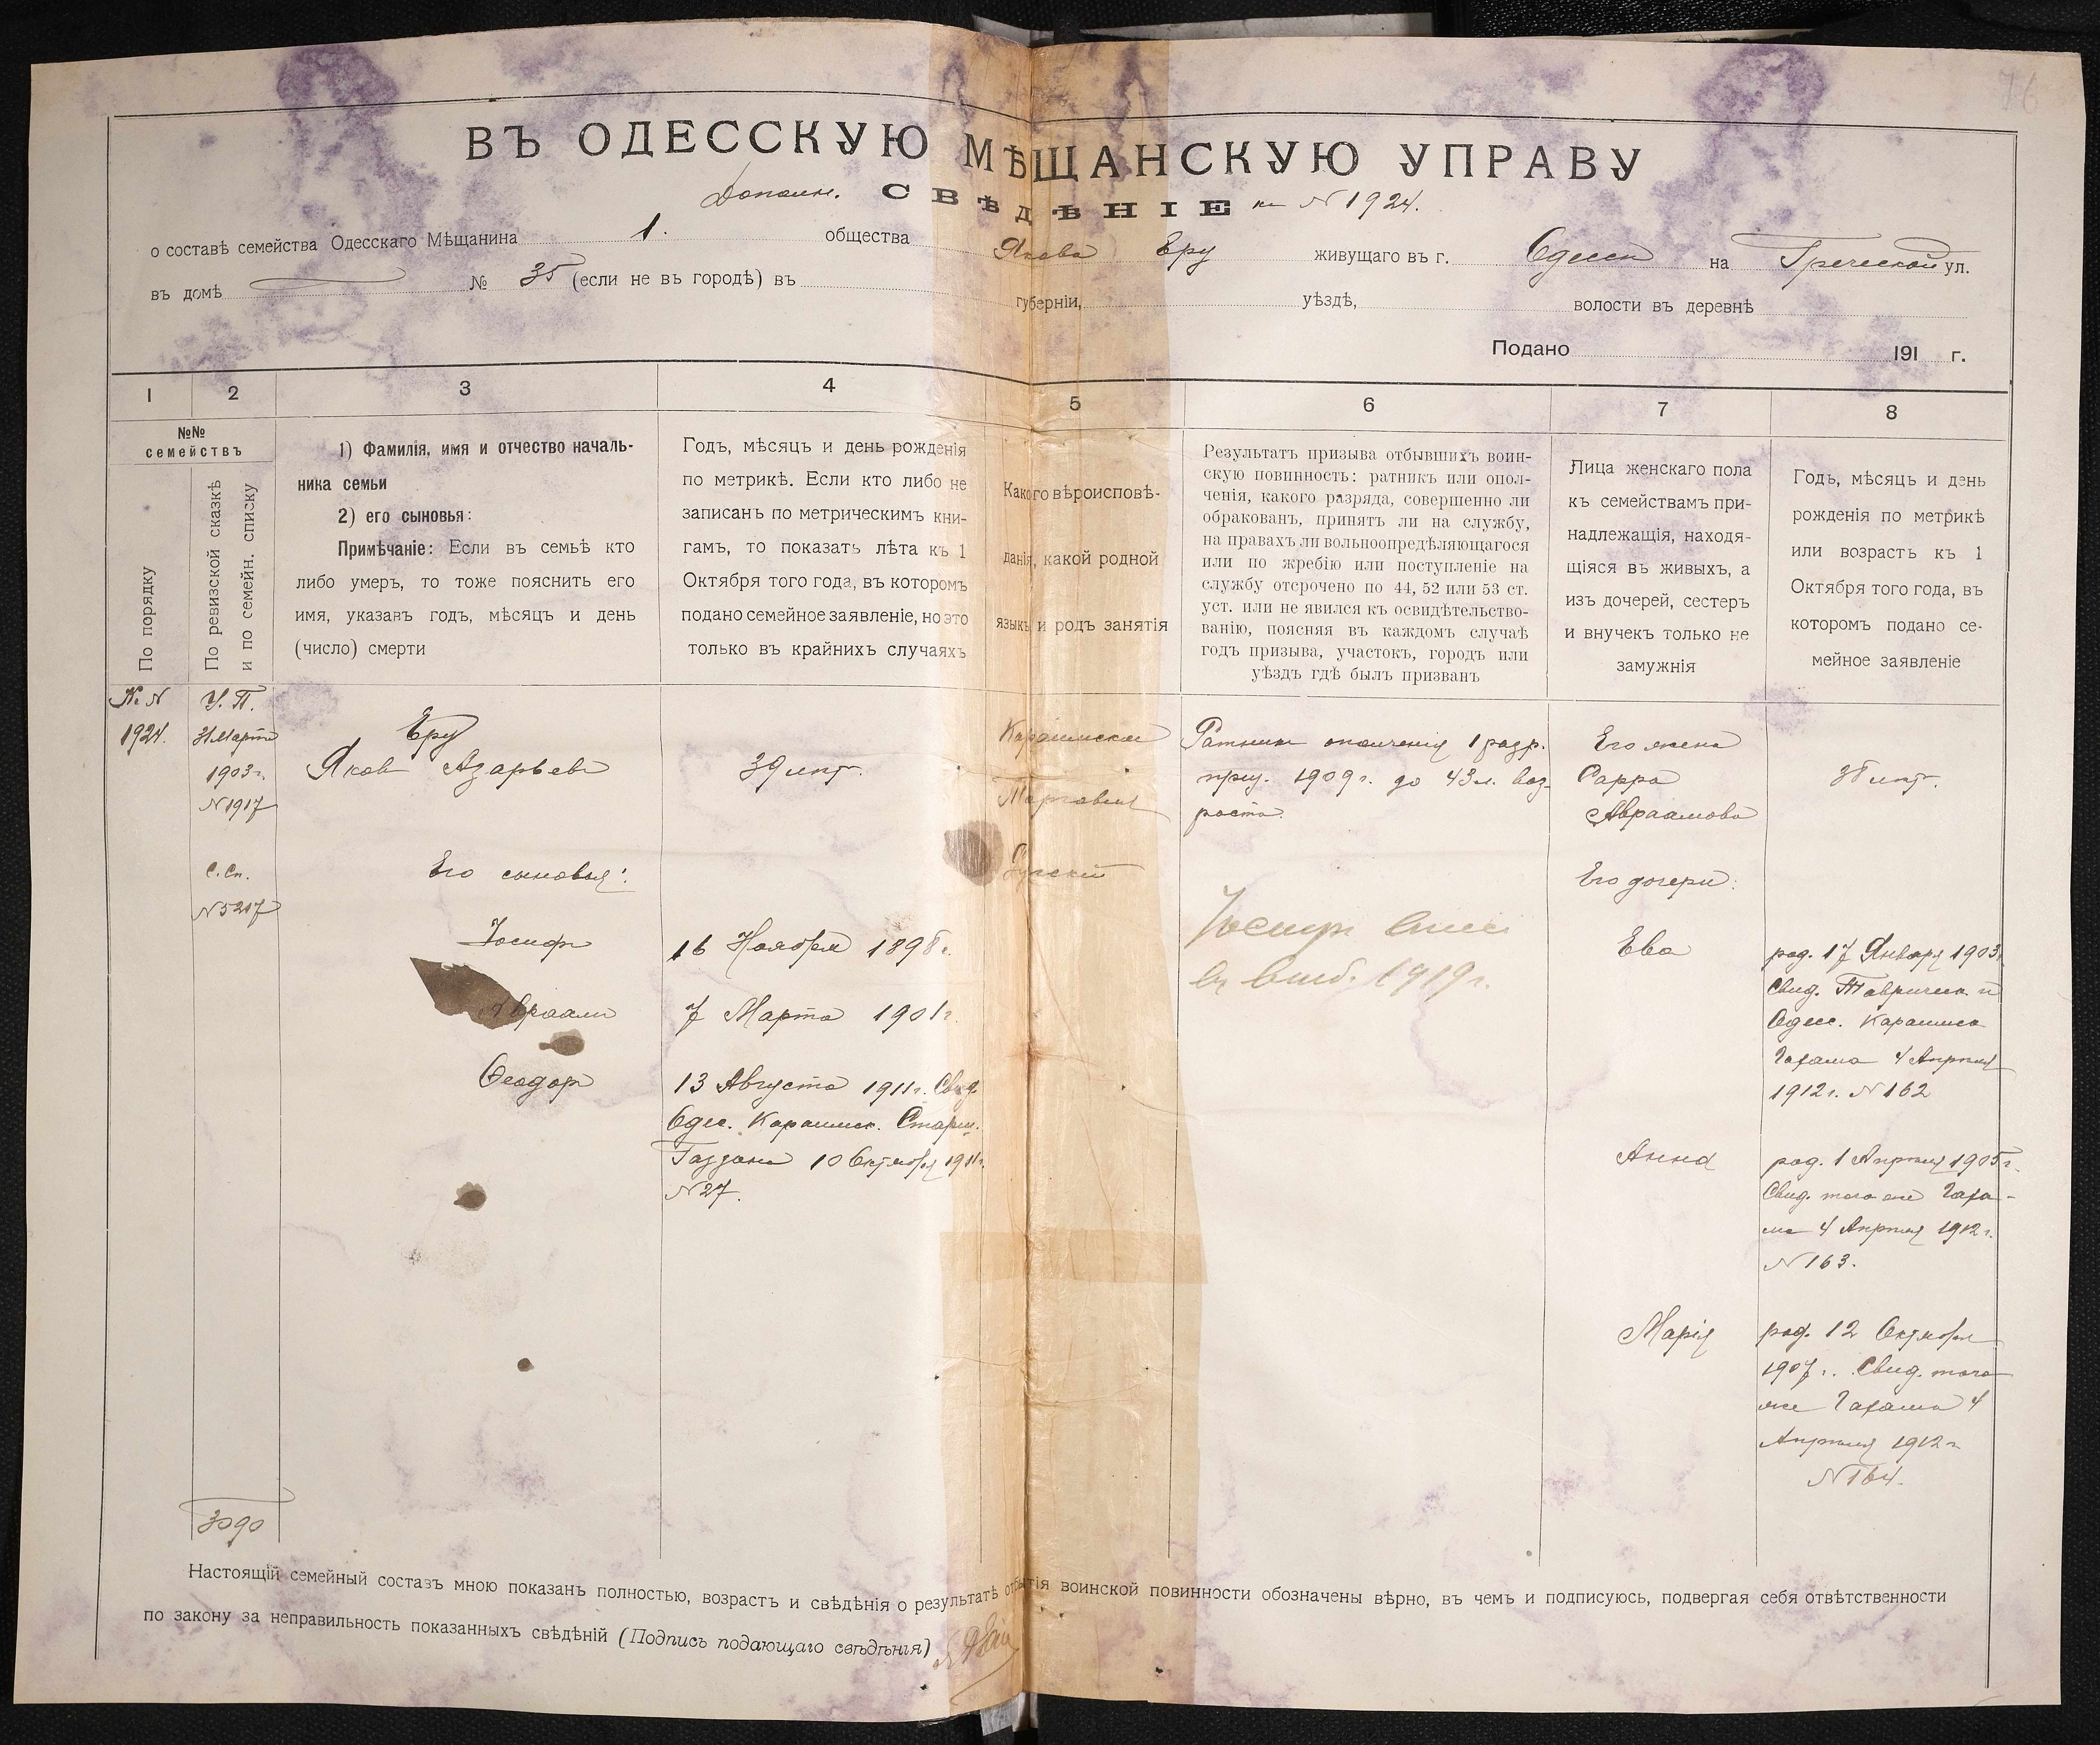 76
ВЪ ОДЕССКУЮ МѢЩАНСКУЮ УПРАВУ
Дополн. СВѢДѢНІЕ къ №1924.
о составѣ семейства Одесскаго Мѣщанина 1. общества Якова Эру живущаго въ г. Одессѣ на Греческой ул.
въ домѣ № 35 (если не въ городѣ) въ губерніи, уѣздѣ, волости въ деревнѣ
Подано 191 г.
1 2 3 4 5 6 7 8
№№
семействъ
По порядку
По ревизской сказкѣ
и по семейн. списку
1) Фамилія, имя и отчество началь-
ника семьи
2) его сыновья:
Примѣчаніе: Если въ семьѣ кто
либо умеръ, то тоже пояснить его
имя, указавъ годъ, мѣсяцъ и день
(число) смерти
Годъ, мѣсяцъ и день рожденія
по метрикѣ. Если кто либо не
записанъ по метрическимъ кни-
гамъ, то показать лѣта къ 1
Октября того года, въ которомъ
подано семейное заявленіе, но это
только въ крайнихъ случаяхъ
Какого вѣроисповѣ-
данія, какой родной
языкъ и родъ занятія
Результатъ призыва отбывшихъ воин-
скую повинность: ратникъ или опол-
ченія, какого разряда, совершенно ли
обракованъ, принятъ ли на службу,
на правахъ ли вольноопредѣляющагося
или по жребію или поступленіе на
службу отсрочено по 44, 52 или 53 ст.
уст. или не явился къ освидѣтельство-
ванію, поясняя въ каждомъ случаѣ
годъ призыва, участокъ, городъ или
уѣздъ гдѣ былъ призванъ
Лица женскаго пола
къ семействамъ при-
надлежащія, находя-
щіяся въ живыхъ, а
изъ дочерей, сестеръ
и внучекъ только не
замужнія
Годъ, мѣсяцъ и день
рожденія по метрикѣ
или возрастъ къ 1
Октября того года, въ
которомъ подано се-
мейное заявленіе
№ №
1924.
У. П.
31 Марта
1903 г.
№1917
С. Сп.
№5217
3090
Эру
Яковъ Азарьевъ
Его сыновья:
Іосифъ
Авраамъ
Ѳеодоръ
39 лѣтъ.
16 Ноября 1898 г.
7 Марта 1901 г.
13 Августа 1911 г. Свид.
Одес. Караимск. Старш.
Газзана 10 Октября 1911 г.
№27.
Караимской
Торговля
Русскій
Ратникъ ополченія 1 разр.
приз. 1909 г. до 43 л. воз-
раста.
Іосифъ
1919 г.
Его жена
Сарра
Авраамова
Его дочери:
Ева
Анна
Марія
лѣтъ.
род. 17 Января 1903
Свид. Таврическ. и
Одес. Караимск.
Гахама 4 Апрѣля
1912 г. №162
род. 1 Апрѣля 1905 г.
Свид. того же Гаха-
ма 4 Апрѣля 1912 г.
№163.
род. 12 Октября
1907 г. Свид. того
же Гахама 4
Апрѣля 1912 г.
№164.
Настоящій семейный составъ мною показанъ полностью, возрастъ и свѣдѣнія о результатѣ отбытія воинской повинности обозначены вѣрно, въ чемъ и подписуюсь, подвергая себя отвѣтственности
по закону за неправильность показанныхъ свѣдѣній (Подпись подающаго свѣдѣнія)